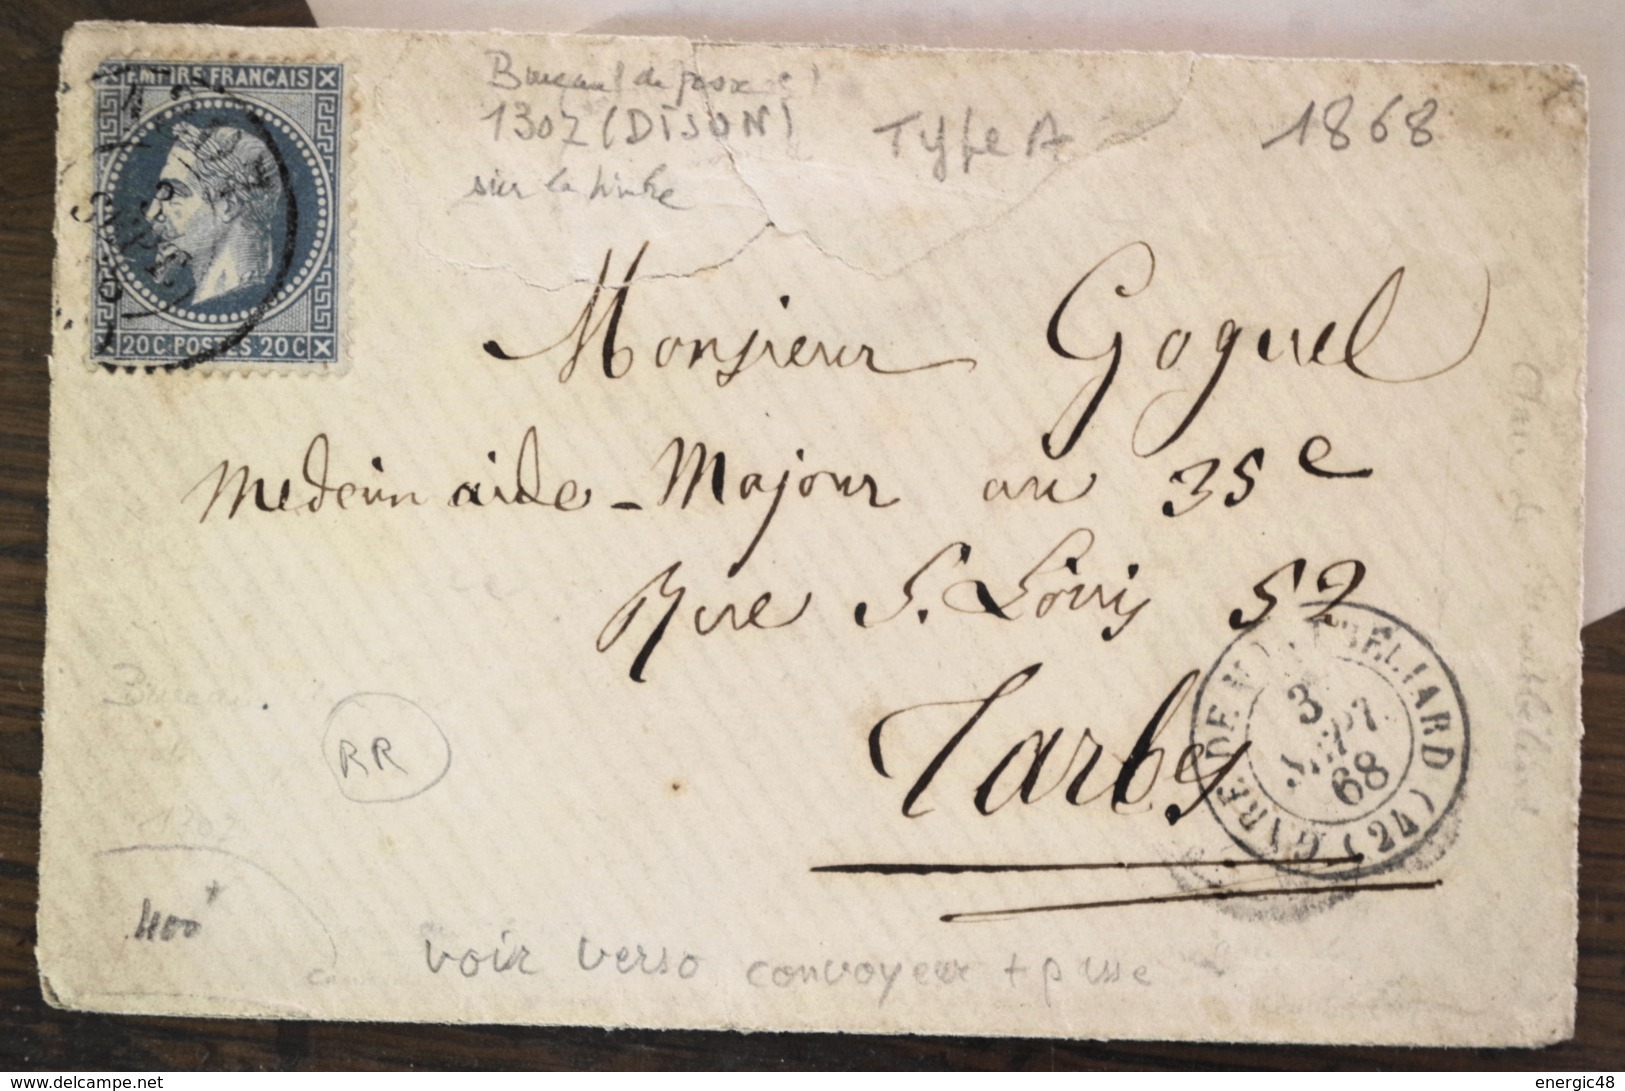 EMPIRE FRANÇAIS
20C POSTES 20C
1307
3
SEPT
Bureau de passe
1307 (DIJON)
sur le timbre
Type A
1868
Monsieur Goguel
Medecin aide-Major au 35e
Rue S. Louis 52
Tarbes
GARE DE MONTBÉLIARD (24)
3
SEPT
68
RR
1307
400+
voir verso convoyeur + passe
delcampe.net
energic48